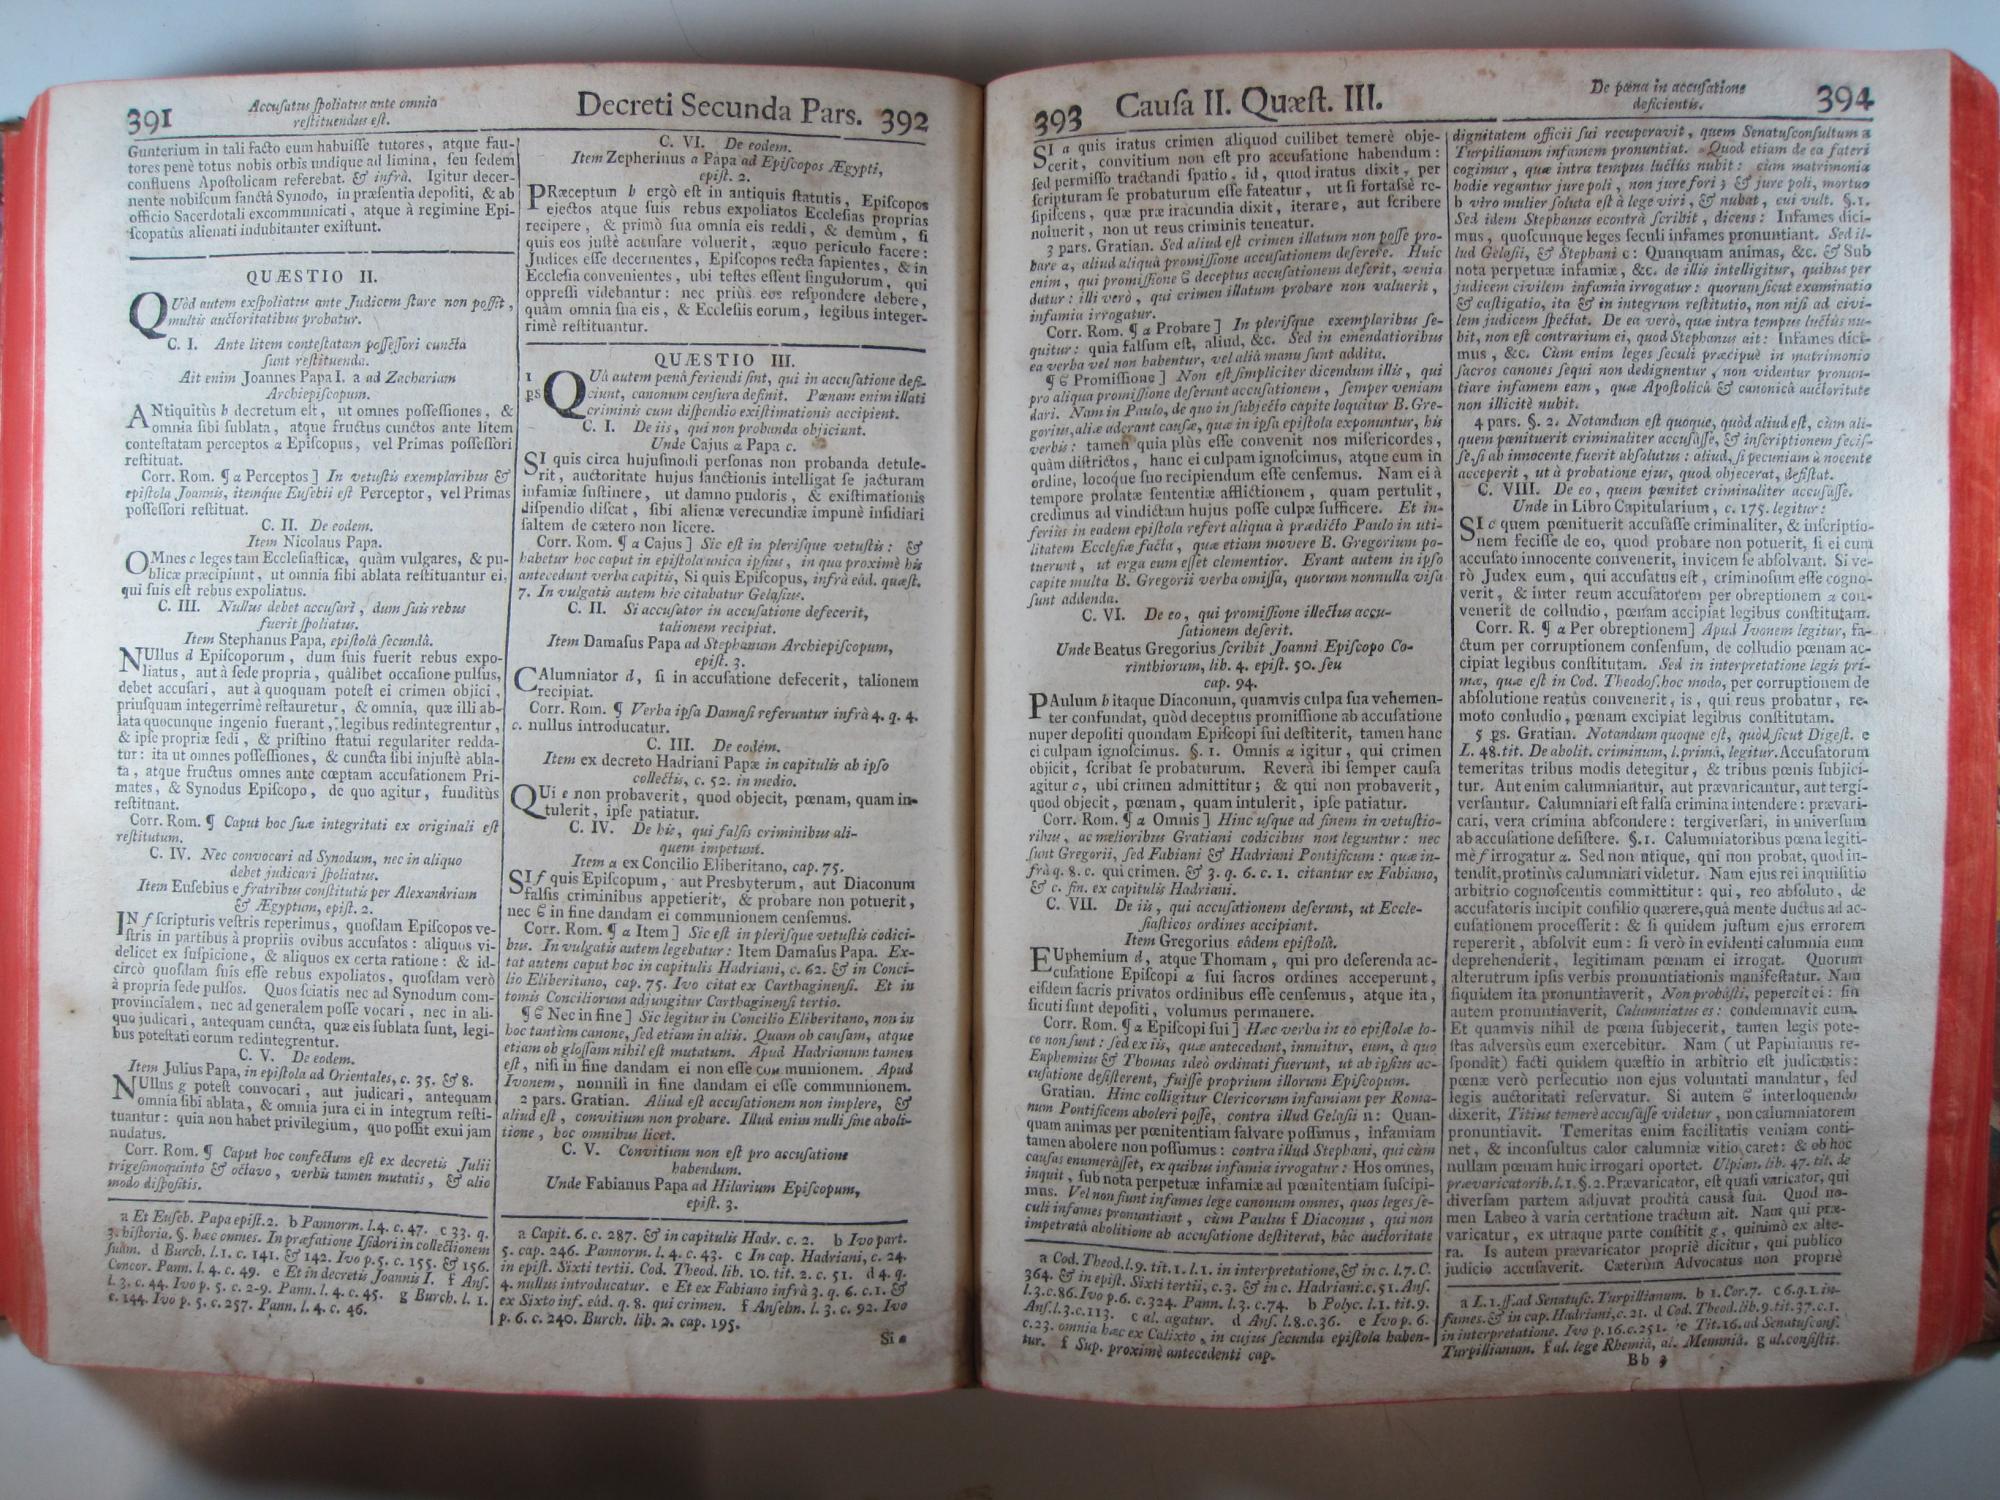 391
Accuſatus ſpoliatus ante omnia
reſtituendus eſt.
Decreti Secunda Pars. 392
Gunterium in tali facto eum habuiſſe tutores, atque fau-
tores penè totus nobis orbis undique ad limina, ſeu ſedem
confluens Apoſtolicam referebat. & infrà. Igitur decer-
nente nobiſcum ſanctâ Synodo, in præſentia depoſiti, & ab
officio Sacerdotali excommunicati, atque à regimine Epi-
ſcopatûs alienati indubitanter exiſtunt.
QUÆSTIO II.
QUòd autem exſpoliatus ante Judicem ſtare non poſſit,
multis auctoritatibus probatur.
C. I. Ante litem conteſtatam poſſeſſori cuncta
ſunt reſtituenda.
Ait enim Joannes Papa I. a ad Zachariam
Archiepiſcopum.
ANtiquitùs b decretum eſt, ut omnes poſſeſſiones, &
omnia ſibi ſublata, atque fructus cunctos ante litem
conteſtatam perceptos a Epiſcopus, vel Primas poſſeſſori
reſtituat.
Corr. Rom. ¶ a Perceptos] In vetuſtis exemplaribus &
epiſtola Joannis, itemque Euſebii eſt Perceptor, vel Primas
poſſeſſori reſtituat.
C. II. De eodem.
Item Nicolaus Papa.
OMnes c leges tam Eccleſiaſticæ, quàm vulgares, & pu-
blicæ præcipiunt, ut omnia ſibi ablata reſtituantur ei,
qui ſuis eſt rebus expoliatus.
C. III. Nullus debet accuſari, dum ſuis rebus
fuerit ſpoliatus.
Item Stephanus Papa, epiſtolâ ſecundâ.
NUllus d Epiſcoporum, dum ſuis fuerit rebus expo-
liatus, aut à ſede propria, quâlibet occaſione pulſus,
debet accuſari, aut à quoquam poteſt ei crimen objici,
priuſquam integerrimè reſtauretur, & omnia, quæ illi ab-
lata quocunque ingenio fuerant, legibus redintegrentur,
& ipſe propriæ ſedi, & priſtino ſtatui regulariter redda-
tur: ita ut omnes poſſeſſiones, & cuncta ſibi injuſtè abla-
ta, atque fructus omnes ante cœptam accuſationem Pri-
mates, & Synodus Epiſcopo, de quo agitur, funditùs
reſtituant.
Corr. Rom. ¶ Caput hoc ſuæ integritati ex originali eſt
reſtitutum.
C. IV. Nec convocari ad Synodum, nec in aliquo
debet judicari ſpoliatus.
Item Euſebius e fratribus conſtitutis per Alexandriam
& Ægyptum, epiſt. 2.
IN f ſcripturis veſtris reperimus, quoſdam Epiſcopos ve-
ſtris in partibus à propriis ovibus accuſatos: aliquos vi-
delicet ex ſuſpicione, & aliquos ex certa ratione: & id-
circò quoſdam ſuis eſſe rebus expoliatos, quoſdam verò
à propria ſede pulſos. Quos ſciatis nec ad Synodum com-
provincialem, nec ad generalem poſſe vocari, nec in ali-
quo judicari, antequam cuncta, quæ eis ſublata ſunt, legi-
bus poteſtati eorum redintegrentur.
C. V. De eodem.
Item Julius Papa, in epiſtola ad Orientales, c. 35. & 8.
NUllus g poteſt convocari, aut judicari, antequam
omnia ſibi ablata, & omnia jura ei in integrum reſti-
tuantur: quia non habet privilegium, quo poſſit exui jam
nudatus.
Corr. Rom. ¶ Caput hoc confectum eſt ex decretis Julii
trigeſimoquinto & octavo, verbis tamen mutatis, & alio
modo diſpoſitis.
a Et Euſeb. Papa epiſt. 2. b Pannorm. l. 4. c. 47. c 33. q.
3. hiſtoria, §. hæc omnes. In præfatione Iſidori in collectionem
ſuam. d Burch. l. 1. c. 141. & 142. Ivo p. 5. c. 155. & 156.
Concor. Pann. l. 4. c. 49. e Et in decretis Joannis I. f Anſ.
l. 3. c. 44. Ivo p. 5. c. 2-9. Pann. l. 4. c. 45. g Burch. l. 1.
c. 144. Ivo p. 5. c. 257. Pann. l. 4. c. 46.
C. VI. De eodem.
Item Zepherinus a Papa ad Epiſcopos Ægypti,
epiſt. 2.
PRæceptum b ergò eſt in antiquis ſtatutis, Epiſcopos
ejectos atque ſuis rebus expoliatos Eccleſias proprias
recipere, & primò ſua omnia eis reddi, & demùm, ſi
quis eos juſtè accuſare voluerit, æquo periculo facere:
Judices eſſe decernentes, Epiſcopos recta ſapientes, & in
Eccleſia convenientes, ubi teſtes eſſent ſingulorum, qui
oppreſſi videbantur: nec priùs eos reſpondere debere,
quàm omnia ſua eis, & Eccleſiis eorum, legibus integer-
rimè reſtituantur.
QUÆSTIO III.
1
ps
QUâ autem pœnâ feriendi ſint, qui in accuſatione defi-
ciunt, canonum cenſura definit. Pœnam enim illati
criminis cum diſpendio exiſtimationis accipient.
C. I. De iis, qui non probanda objiciunt.
Unde Cajus a Papa c.
SI quis circa hujuſmodi perſonas non probanda detule-
rit, auctoritate hujus ſanctionis intelligat ſe jacturam
infamiæ ſuſtinere, ut damno pudoris, & exiſtimationis
diſpendio diſcat, ſibi alienæ verecundiæ impunè inſidiari
ſaltem de cætero non licere.
Corr. Rom. ¶ a Cajus] Sic eſt in pleriſque vetuſtis: &
habetur hoc caput in epiſtola unica ipſius, in qua proximè his
antecedunt verba capitis, Si quis Epiſcopus, infrà eâd. quæſt.
7. In vulgatis autem hic citabatur Gelaſius.
C. II. Si accuſator in accuſatione defecerit,
talionem recipiat.
Item Damaſus Papa ad Stephanum Archiepiſcopum,
epiſt. 3.
CAlumniator d, ſi in accuſatione defecerit, talionem
recipiat.
Corr. Rom. ¶ Verba ipſa Damaſi referuntur infrà 4. q. 4.
c. nullus introducatur.
C. III. De eodem.
Item ex decreto Hadriani Papæ in capitulis ab ipſo
collectis, c. 52. in medio.
QUi e non probaverit, quod objecit, pœnam, quam in-
tulerit, ipſe patiatur.
C. IV. De his, qui falſis criminibus ali-
quem impetunt.
Item a ex Concilio Eliberitano, cap. 75.
SI f quis Epiſcopum, aut Presbyterum, aut Diaconum
falſis criminibus appetierit, & probare non potuerit,
nec ϐ in fine dandam ei communionem cenſemus.
Corr. Rom. ¶ a Item] Sic eſt in pleriſque vetuſtis codici-
bus. In vulgatis autem legebatur: Item Damaſus Papa. Ex-
tat autem caput hoc in capitulis Hadriani, c. 62. & in Conci-
lio Eliberitano, cap. 75. Ivo citat ex Carthaginenſi. Et in
tomis Conciliorum adjungitur Carthaginenſi tertio.
¶ ϐ Nec in fine] Sic legitur in Concilio Eliberitano, non in
hoc tantùm canone, ſed etiam in aliis. Quam ob cauſam, atque
etiam ob gloſſam nihil eſt mutatum. Apud Hadrianum tamen
eſt, niſi in fine dandam ei non eſſe communionem. Apud
Ivonem, nonniſi in fine dandam ei eſſe communionem.
2 pars. Gratian. Aliud eſt accuſationem non implere, &
aliud eſt, convitium non probare. Illud enim nulli ſine aboli-
tione, hoc omnibus licet.
C. V. Convitium non eſt pro accuſatione
habendum.
Unde Fabianus Papa ad Hilarium Epiſcopum,
epiſt. 3.
a Capit. 6. c. 287. & in capitulis Hadr. c. 2. b Ivo part.
5. cap. 246. Pannorm. l. 4. c. 43. c In cap. Hadriani, c. 24.
in epiſt. Sixti tertii. Cod. Theod. lib. 10. tit. 2. c. 51. d 4. q.
4. nullus introducatur. e Et ex Fabiano infrà 3. q. 6. c. 1. &
ex Sixto inf. eâd. q. 8. qui crimen. f Anſelm. l. 3. c. 92. Ivo
p. 6. c. 240. Burch. lib. 2. cap. 195.
Si
393 Cauſa II. Quæſt. III.
De pœna in accuſatione
deficientis.
394
SI a quis iratus crimen aliquod cuilibet temerè obje-
cerit, convitium non eſt pro accuſatione habendum:
ſed permiſſo tractandi ſpatio, id, quod iratus dixit, per
ſcripturam ſe probaturum eſſe fateatur, ut ſi fortaſsè re-
ſipiſcens, quæ præ iracundia dixit, iterare, aut ſcribere
noluerit, non ut reus criminis teneatur.
3 pars. Gratian. Sed aliud eſt crimen illatum non poſſe pro-
bare a, aliud aliquâ promiſſione accuſationem deſerere. Huic
enim, qui promiſſione ϐ deceptus accuſationem deſerit, venia
datur: illi verò, qui crimen illatum probare non valuerit,
infamia irrogatur.
Corr. Rom. ¶ a Probare] In pleriſque exemplaribus ſe-
quitur: quia falſum eſt, aliud, &c. Sed in emendatioribus
ea verba vel non habentur, vel aliâ manu ſunt addita.
¶ ϐ Promiſſione] Non eſt ſimpliciter dicendum illis, qui
pro aliqua promiſſione deſerunt accuſationem, ſemper veniam
dari. Nam in Paulo, de quo in ſubjecto capite loquitur B. Gre-
gorius, aliæ aderant cauſæ, quæ in ipſa epiſtola exponuntur, his
verbis: tamen quia plùs eſſe convenit nos miſericordes,
quàm diſtrictos, hanc ei culpam ignoſcimus, atque eum in
ordine, locoque ſuo recipiendum eſſe cenſemus. Nam ei à
tempore prolatæ ſententiæ afflictionem, quam pertulit,
credimus ad vindictam hujus poſſe culpæ ſufficere. Et in-
feriùs in eadem epiſtola refert aliqua à prædicto Paulo in uti-
litatem Eccleſiæ facta, quæ etiam movere B. Gregorium po-
tuerunt, ut erga eum eſſet clementior. Erant autem in ipſo
capite multa B. Gregorii verba omiſſa, quorum nonnulla viſa
ſunt addenda.
C. VI. De eo, qui promiſſione illectus accu-
ſationem deſerit.
Unde Beatus Gregorius ſcribit Joanni Epiſcopo Co-
rinthiorum, lib. 4. epiſt. 50. ſeu
cap. 94.
PAulum b itaque Diaconum, quamvis culpa ſua vehemen-
ter confundat, quòd deceptus promiſſione ab accuſatione
nuper depoſiti quondam Epiſcopi ſui deſtiterit, tamen hanc
ei culpam ignoſcimus. §. 1. Omnis a igitur, qui crimen
objicit, ſcribat ſe probaturum. Reverà ibi ſemper cauſa
agitur c, ubi crimen admittitur; & qui non probaverit,
quod objecit, pœnam, quam intulerit, ipſe patiatur.
Corr. Rom. ¶ a Omnis] Hinc uſque ad finem in vetuſtio-
ribus, ac melioribus Gratiani codicibus non leguntur: nec
ſunt Gregorii, ſed Fabiani & Hadriani Pontificum: quæ in-
frà q. 8. c. qui crimen. & 3. q. 6. c. 1. citantur ex Fabiano,
& c. fin. ex capitulis Hadriani.
C. VII. De iis, qui accuſationem deſerunt, ut Eccle-
ſiaſticos ordines accipiant.
Item Gregorius eâdem epiſtolâ.
EUphemium d, atque Thomam, qui pro deſerenda ac-
cuſatione Epiſcopi a ſui ſacros ordines acceperunt,
eiſdem ſacris privatos ordinibus eſſe cenſemus, atque ita,
ſicuti ſunt depoſiti, volumus permanere.
Corr. Rom. ¶ a Epiſcopi ſui] Hæc verba in eo epiſtolæ lo-
co non ſunt: ſed ex iis, quæ antecedunt, innuitur, eum, à quo
Euphemius & Thomas ideò ordinati fuerunt, ut ab ipſius ac-
cuſatione deſiſterent, fuiſſe proprium illorum Epiſcopum.
Gratian. Hinc colligitur Clericorum infamiam per Roma-
num Pontificem aboleri poſſe, contra illud Gelaſii n: Quan-
quam animas per pœnitentiam ſalvare poſſumus, infamiam
tamen abolere non poſſumus: contra illud Stephani, qui cùm
cauſas enumeràſſet, ex quibus infamia irrogatur: Hos omnes,
inquit, ſub nota perpetuæ infamiæ ad pœnitentiam ſuſcipi-
mus. Vel non ſunt infames lege canonum omnes, quos leges ſe-
culi infames pronuntiant, cùm Paulus f Diaconus, qui non
impetratâ abolitione ab accuſatione deſtiterat, hâc auctoritate
a Cod. Theod. l. 9. tit. 1. l. 1. in interpretatione, & in c. l. 7. C.
364. & in epiſt. Sixti tertii, c. 3. & in c. Hadriani. c. 51. Anſ.
l. 3. c. 86. Ivo p. 6. c. 324. Pann. l. 3. c. 74. b Polyc. l. 1. tit. 9.
Anſ. l. 3. c. 113. c al. agatur. d Anſ. l. 8. c. 36. e Ivo p. 6.
c. 23. omnia hæc ex Calixto, in cujus ſecunda epiſtola haben-
tur. f Sup. proximè antecedenti cap.
dignitatem officii ſui recuperavit, quem Senatuſconſultum a
Turpilianum infamem pronuntiat. Quod etiam de ea fateri
cogimur, quæ intra tempus luctûs nubit: cùm matrimonia
hodie reguntur jure poli, non jure fori; & jure poli, mortuo
b viro mulier ſoluta eſt à lege viri, & nubat, cui vult. §. 1.
Sed idem Stephanus econtrà ſcribit, dicens: Infames dici-
mus, quoſcunque leges ſeculi infames pronuntiant. Sed il-
lud Gelaſii, & Stephani c: Quanquam animas, &c. & Sub
nota perpetuæ infamiæ, &c. de illis intelligitur, quibus per
judicem civilem infamia irrogatur: quorum ſicut examinatio
& caſtigatio, ita & in integrum reſtitutio, non niſi ad civi-
lem judicem ſpectat. De ea verò, quæ intra tempus luctûs nu-
bit, non eſt contrarium ei, quod Stephanus ait: Infames dici-
mus, &c. Cùm enim leges ſeculi præcipuè in matrimonio
ſacros canones ſequi non dedignentur, non videntur pronun-
tiare infamem eam, quæ Apoſtolicâ & canonicâ auctoritate
non illicitè nubit.
4 pars. §. 2. Notandum eſt quoque, quòd aliud eſt, cùm ali-
quem pœnituerit criminaliter accuſàſſe, & inſcriptionem feciſ-
ſe, ſi ab innocente fuerit abſolutus: aliud, ſi pecuniam à nocente
acceperit, ut à probatione ejus, quod objecerat, deſiſtat.
C. VIII. De eo, quem pœnitet criminaliter accuſàſſe.
Unde in Libro Capitularium, c. 175. legitur:
SI c quem pœnituerit accuſaſſe criminaliter, & inſcriptio-
nem feciſſe de eo, quod probare non potuerit, ſi ei cum
accuſato innocente convenerit, invicem ſe abſolvant. Si ve-
rò Judex eum, qui accuſatus eſt, criminoſum eſſe cogno-
verit, & inter reum accuſatorem per obreptionem a con-
venerit de colludio, pœnam accipiat legibus conſtitutam.
Corr. R. ¶ a Per obreptionem] Apud Ivonem legitur, fa-
ctum per corruptionem conſenſum, de colludio pœnam ac-
cipiat legibus conſtitutam. Sed in interpretatione legis pri-
mæ, quæ eſt in Cod. Theodoſ. hoc modo, per corruptionem de
abſolutione reatûs convenerit, is, qui reus probatur, re-
moto conludio, pœnam excipiat legibus conſtitutam.
5 ps. Gratian. Notandum quoque eſt, quòd ſicut Digeſt. e
L. 48. tit. De abolit. criminum, l. primâ, legitur. Accuſatorum
temeritas tribus modis detegitur, & tribus pœnis ſubjici-
tur. Aut enim calumniantur, aut prævaricantur, aut tergi-
verſantur. Calumniari eſt falſa crimina intendere: prævari-
cari, vera crimina abſcondere: tergiverſari, in univerſum
ab accuſatione deſiſtere. §. 1. Calumniatoribus pœna legiti-
mè f irrogatur a. Sed non utique, qui non probat, quod in-
tendit, protinùs calumniari videtur. Nam ejus rei inquiſitio
arbitrio cognoſcentis committitur: qui, reo abſoluto, de
accuſatoris incipit conſilio quærere, quâ mente ductus ad ac-
cuſationem proceſſerit: & ſi quidem juſtum ejus errorem
repererit, abſolvit eum: ſi verò in evidenti calumnia eum
deprehenderit, legitimam pœnam ei irrogat. Quorum
alterutrum ipſis verbis pronuntiationis manifeſtatur. Nam
ſiquidem ita pronuntiaverit, Non probâſti, pepercit ei: ſin
autem pronuntiaverit, Calumniatus es: condemnavit eum.
Et quamvis nihil de pœna ſubjecerit, tamen legis pote-
ſtas adversùs eum exercebitur. Nam (ut Papinianus re-
ſpondit) facti quidem quæſtio in arbitrio eſt judicantis:
pœnæ verò perſecutio non ejus voluntati mandatur, ſed
legis auctoritati reſervatur. Si autem ϐ interloquendo
dixerit, Titius temerè accuſàſſe videtur, non calumniatorem
pronuntiavit. Temeritas enim facilitatis veniam conti-
net, & inconſultus calor calumniæ vitio caret: & ob hoc
nullam pœnam huic irrogari oportet. Ulpian. lib. 47. tit. de
prævaricatorib. l. 1. §. 2. Prævaricator, eſt quaſi varicator, qui
diverſam partem adjuvat prodità cauſâ ſuâ. Quod no-
men Labeo à varia certatione tractum ait. Nam qui præ-
varicatur, ex utraque parte conſtitit g, quinimò ex alte-
ra. Is autem prævaricator propriè dicitur, qui publico
judicio accuſaverit. Cæterùm Advocatus non propriè
a L. 1. ff. ad Senatuſc. Turpillianum. b 1. Cor. 7. c 6. q. 1. in-
fames. & in cap. Hadriani, c. 21. d Cod. Theod. lib. 9. tit. 37. c. 1.
in interpretatione. Ivo p. 16. c. 251. e Tit. 16. ad Senatuſconſ.
Turpillianum. f al. lege Rhemiâ, al. Memmiâ. g al. conſiſtit.
Bb